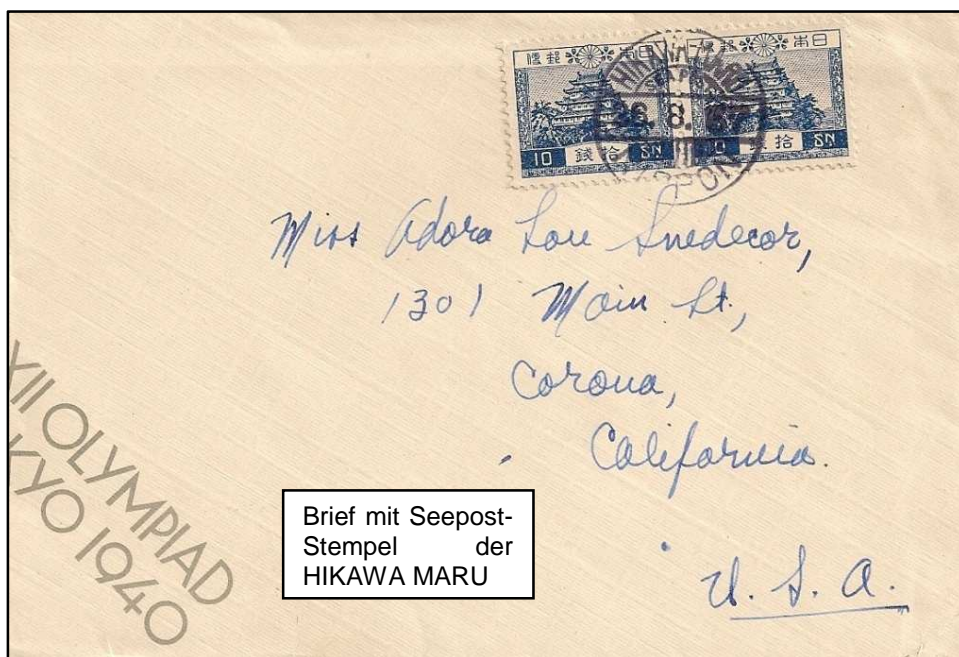 便郵 本日 便郵 本日
10 錢拾 SN 錢拾 SN
HIKAWA MARU
SEAPOST
6. 8. 37
NIPPON
Miss Adora Lou Snedecor,
1301 Main St,
Corona,
California.
U. S. A.
XII OLYMPIAD
KYO 1940
Brief mit Seepost-
Stempel der
HIKAWA MARU